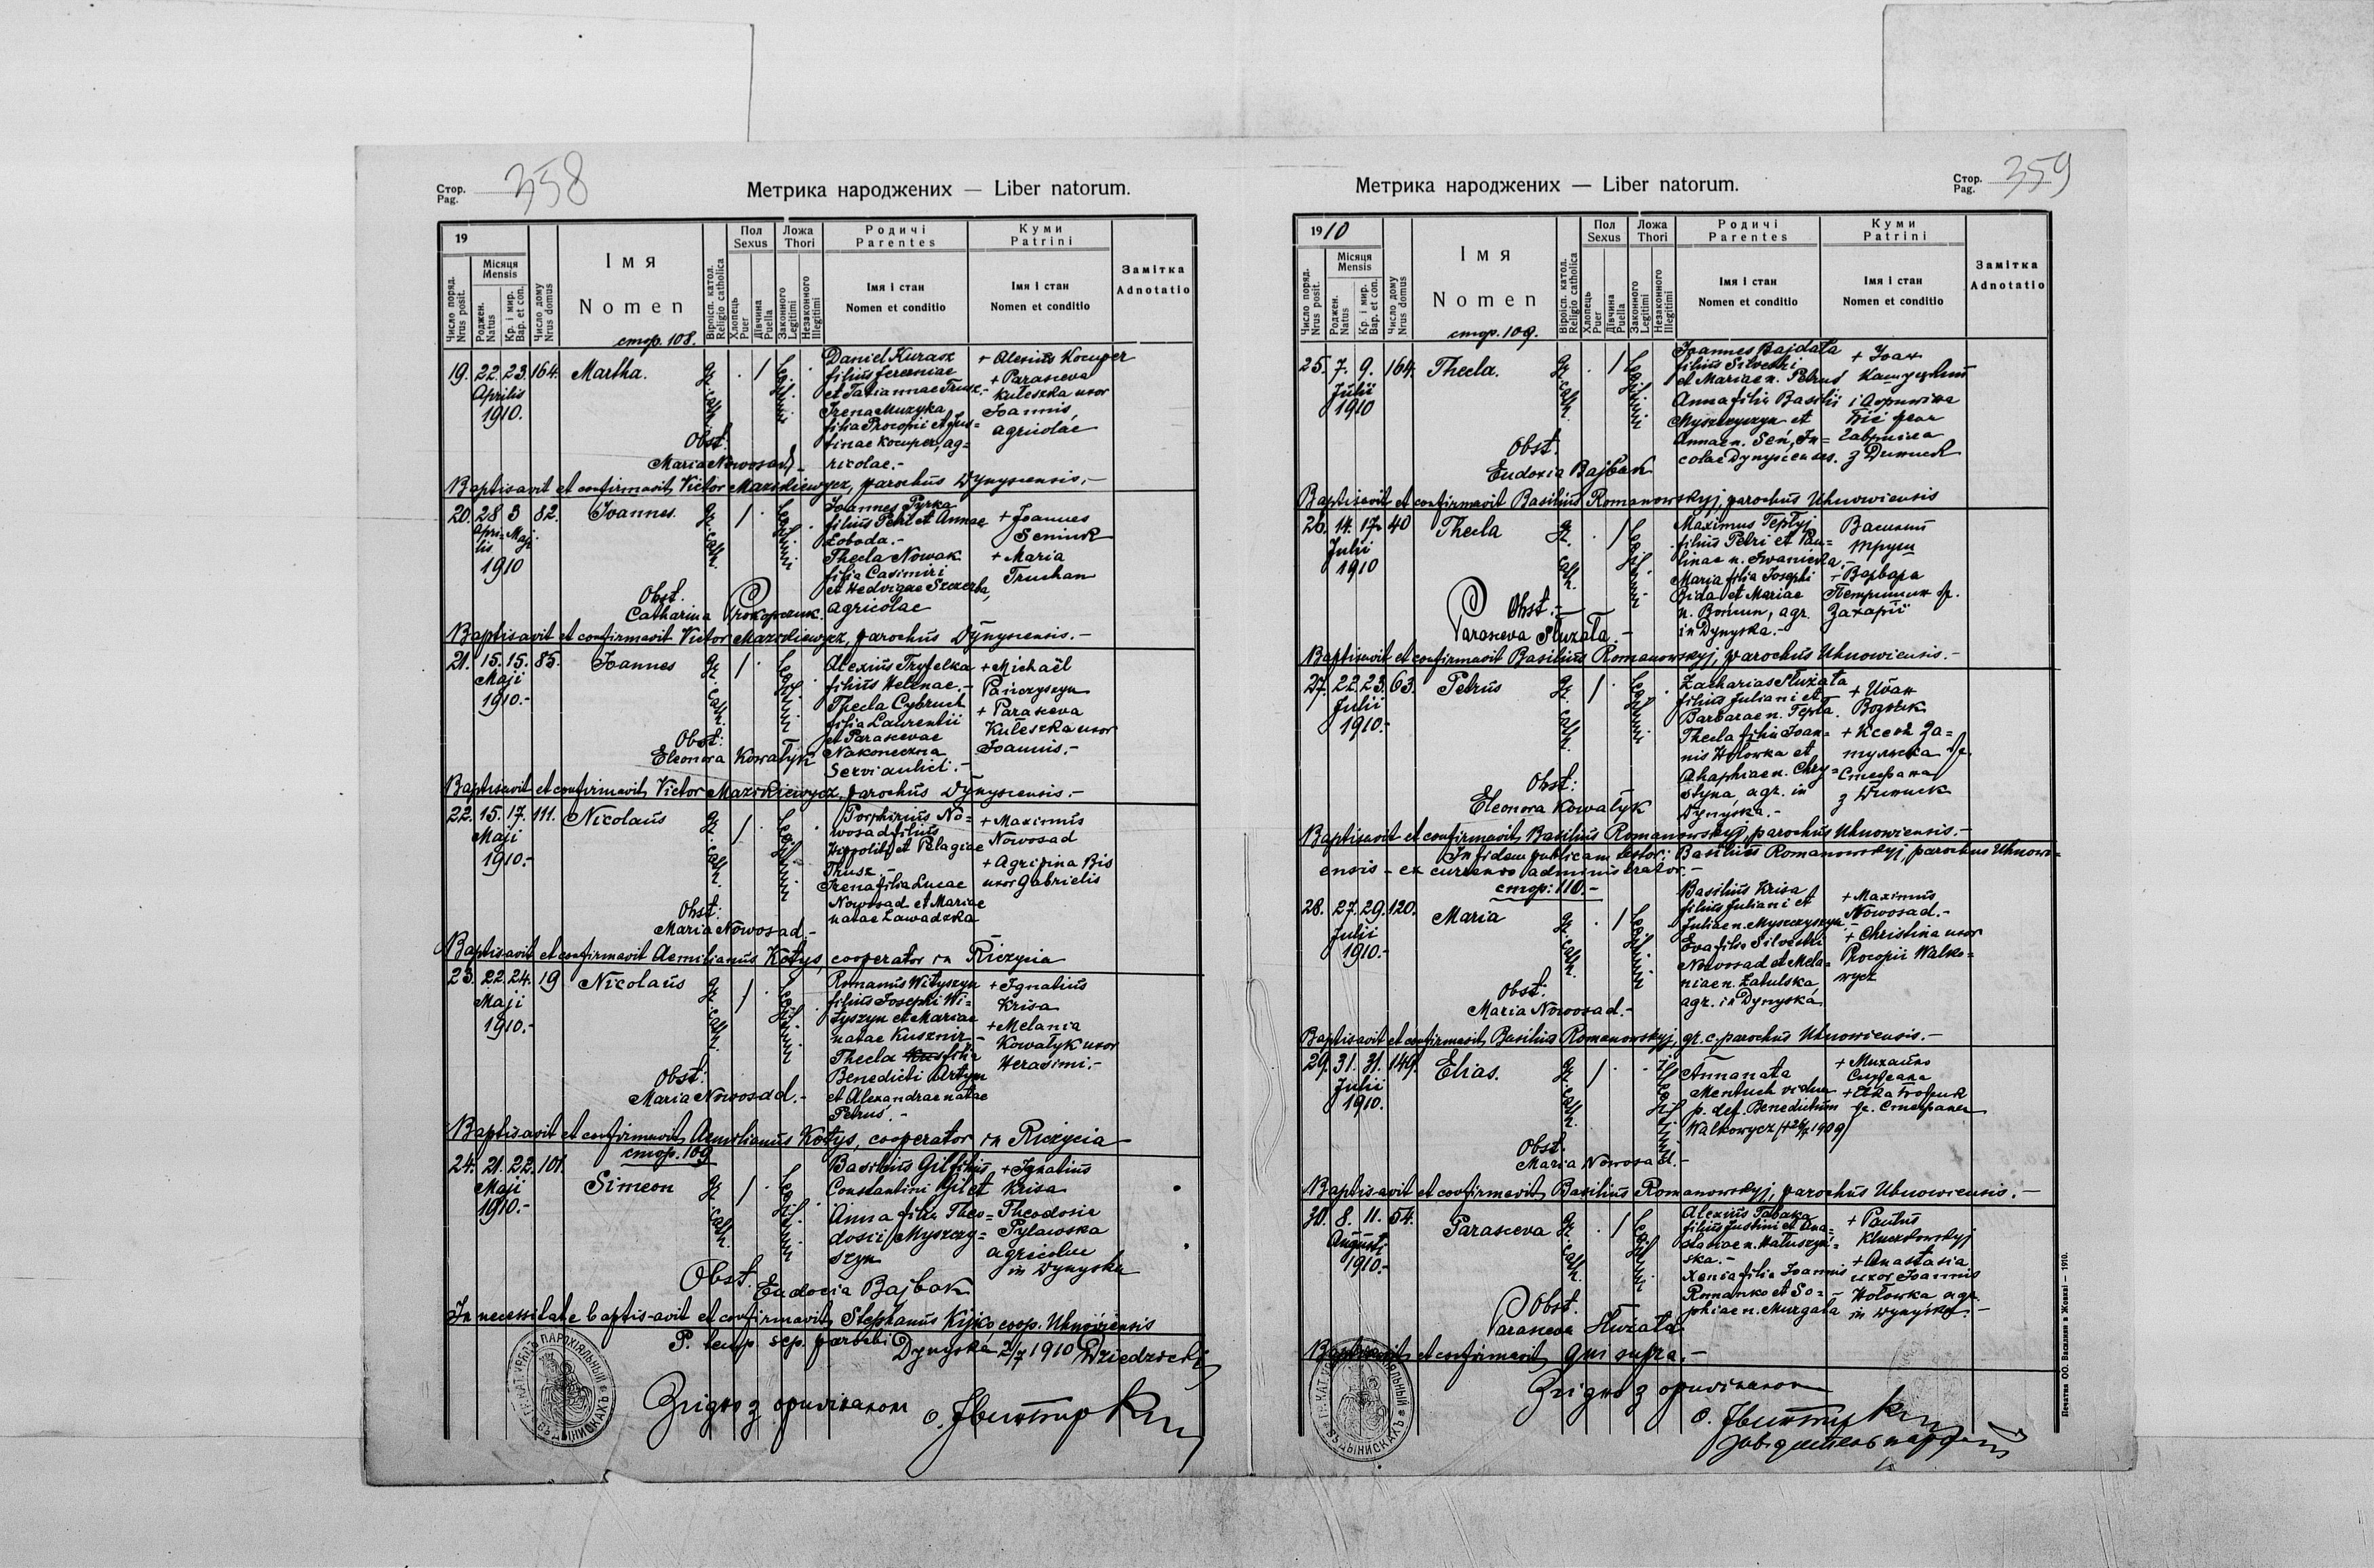 Стор.
Pag. 358
Метрика народжених — Liber natorum.
19
Місяця
Mensis
Число поряд.
Nrus posit.
Роджен.
Natus
Кр. і мир.
Bap. et con.
Число дому
Nrus domus
Імя
Nomen
стор. 108.
Віроісп. катол.
Religio catholica
Пол
Sexus
Хлопець
Puer
Дівчина
Puella
Ложа
Thori
Законного
Legitimi
Незаконного
Illegitimi
Родичі
Parentes
Імя і стан
Nomen et conditio
Куми
Patrini
Імя і стан
Nomen et conditio
Замітка
Adnotatio
19. 22. 23. 164. Martha.
Aprilis
1910.
gr. cath. / Legitimi
Daniel Kurasz
filius Jeremiae
et Tatiannae Trusz.
Irena Muzyka
filia Procopii et Jus=
tinae Kocuper, ag=
ricolae.-
+ Alexius Kocuper
+ Parasceva
Kuleszka uxor
Joannis,
agricolae
Obst.
Maria Nowosad.-
Baptisavit et confirmavit Victor Mazikiewycz, parochus Dynyscensis.-
20. 28 3 82. Joannes.
Apri= Maji
lis
1910
gr. cath. / Legitimi
Joannes Pyrka
filius Petri et Annae
Łoboda.-
Thecla Nowak
filia Casimiri
et Hedvigae Szczerba,
agricolae
+ Joannes
Seniuk
+ Maria
Truchan
Obst.
Catharina Prokopczuk.
Baptisavit et confirmavit Victor Mazikiewycz, parochus Dynyscensis.-
21. 15. 15. 85. Joannes
Maji
1910.-
gr. cath. / Legitimi
Alexius Tryfelka
filius Helenae.-
Thecla Cybruch
filia Laurentii
et Parascevae
Nakoneczna
Servi aulici.-
+ Michaël
Pańczyszyn
+ Parasceva
Kuleszka uxor
Joannis.-
Obst:
Eleonora Kowałyk
Baptisavit et confirmavit Victor Mazikiewycz, parochus Dynyscensis.-
22. 15. 17. 111. Nicolaus
Maji
1910.-
gr. cath. / Legitimi
Porphirius No=
wosad filius
Hippoliti et Pelagiae
Trusz.-
Irena filia Lucae
Nowosad et Mariae
natae Lawadzka
+ Maximus
Nowosad
+ Agripina Bis
uxor Gabrielis
Obst:
Maria Nowosad.-
Baptisavit et confirmavit Aemilianus Kotys, cooperator in Riczycia
23. 22. 24. 19. Nicolaus
Maji
1910.-
gr. cath. / Legitimi
Romanus Wityszyn
filius Josephi Wi=
tyszyn et Mariae
natae Kusznir.-
Thecla filia
Benedicti Artym
et Alexandrae natae
Petruś.-
+ Ignatius
Krisa
+ Melania
Kowałyk uxor
Herasimi.-
Obst:
Maria Nowosad.-
Baptisavit et confirmavit Aemilianus Kotys, cooperator in Riczycia
стор. 109
24. 21. 22. 101. Simeon
Maji
1910.-
gr. cath. / Legitimi
Basilius Gil filius
Constantini Gil et
Anna filia Theo=
dosii Myszczy=
szyn
+ Ignatius
Krisa
Theodosia
Pylawska
agricolae
in Dynyska
Obst.
Eudocia Bajbak
In necessitate baptisavit et confirmavit Stephanus Kijko, coop. Uhnoviensis
Dynyska 2/7 1910
Згідно з оригіналом
Метрика народжених — Liber natorum.
Стор.
Pag. 359
1910
Місяця
Mensis
Число поряд.
Nrus posit.
Роджен.
Natus
Кр. і мир.
Bap. et con.
Число дому
Nrus domus
Імя
Nomen
стор. 109.
Віроісп. катол.
Religio catholica
Пол
Sexus
Хлопець
Puer
Дівчина
Puella
Ложа
Thori
Законного
Legitimi
Незаконного
Illegitimi
Родичі
Parentes
Імя і стан
Nomen et conditio
Куми
Patrini
Імя і стан
Nomen et conditio
Замітка
Adnotatio
25. 7. 9. 164. Thecla.
Julii
1910
gr. cath. / Legitimi
Joannes Bajdała
filius Silvestri
et Mariae n. Petruś
Anna filia Basilii
Myszczyszyn et
Annae n. Seń, In=
colae Dynyscenses.
+ Іоан
Гавриіла
з Диниск
Obst.
Eudoxia Bajbak
Baptisavit et confirmavit Basilius Romanowskyj, parochus Uhnowiensis
26. 14. 17. 40 Thecla
Julii
1910
gr. cath. / Legitimi
Maximus Tepłyj
filius Petri et Pau=
linae n. Iwanicka.-
Maria filia Josephi
Dida et Mariae
, agr.
in Dynyska.-
Василий
Труш
+ Варвара
Петришин ж.
Захарії
Obst.-
Parasceva Służała.-
Baptisavit et confirmavit Basilius Romanowskyj, parochus Uhnowiensis.-
27. 22. 23. 63. Petrus
Julii
1910.-
gr. cath. / Legitimi
Zacharias Służała
filius Juliani et
Barbarae n. Tepła.
Thecla filia Joan=
nis Hołowka et
Ahaphiae n. Chry=
styna agr. in
Dynyska.-
+ Иван
+ Ксеня За=
тульска ж.
Стефана
з Диниск
Obst:
Eleonora Kowałyk
Baptisavit et confirmavit Basilius Romanowskyj, parochus Uhnowiensis.-
In fidem publicam testor: Basilius Romanowskyj, parochus Uhnowi=
ensis - ex currendo administrator.-
стор: 110.-
28. 27. 29. 120. Maria
Julii
1910.-
gr. cath. / Legitimi
Basilius Krisa
filius Juliani et
Juliae n. Myszczyszyn.-
Eva filia Silvestri
Nowosad et Mela=
niae n. Zatulska
agr. in Dynyska
+ Maximus
Nowosad.-
+ Christina uxor
Procopii Walko=
wycz
Obst:
Maria Nowosad.-
Baptisavit et confirmavit Basilius Romanowskyj, gr. c. parochus Uhnowiensis.-
29. 31. 31. 149. Elias.
Julii
1910.
gr. cath. / Illegitimi
Anna nata
Mentuch vidua
p. def. Benedictum
Walkowycz
+ Михайло
ж. Стефана
Obst.
Maria Nowosad.-
Baptisavit et confirmavit Basilius Romanowskyj, parochus Uhnowiensis.-
30. 8. 11. 54. Parasceva
Augusti
1910.-
gr. cath. / Legitimi
Alexius Tabaka
filius Justini et Ana=
stasiae n. Matuszyń=
ska.-
Xenia filia Joannis
Romanko et So=
phiae n. Murgała
+ Paulus
Kluczkowskyj
+ Anastasia
uxor Joannis
Hołowka agr.
in Dynyska.-
Obst.
Parasceva Służała
Baptisavit et confirmavit qui supra.-
Згідно з оригіналом
Печатня ОО. Василиян в Жовкві — 1910.